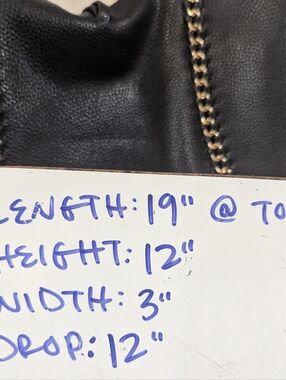 LENGTH: 19" @ TO
HEIGHT: 12"
WIDTH: 3"
DROP: 12"